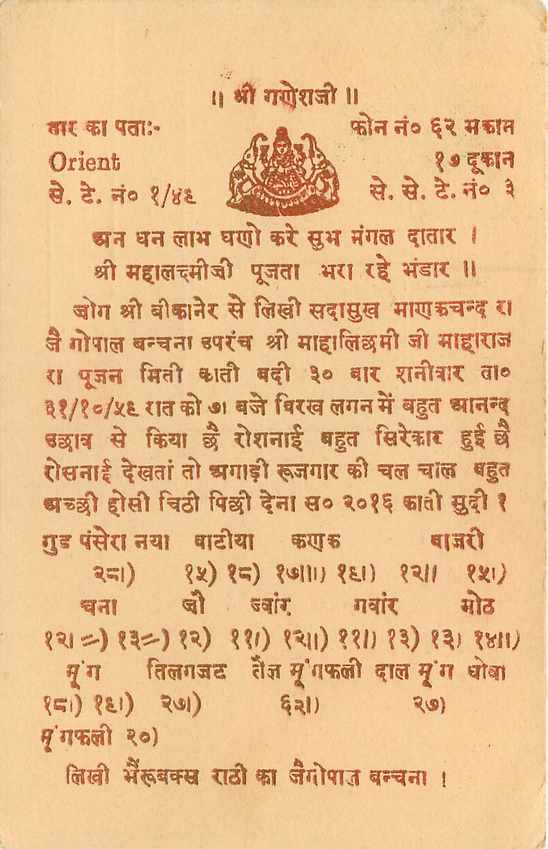 ॥ श्री गणेशजी ॥
तार का पताः-
फोन नं० ६२ मकान
Orient
१७ दूकान
से. टे. नं० १/४६
से. से. टे. नं० ३
अन धन लाभ घणो करे सुभ मंगल दातार ।
श्री महालक्ष्मीजी पूजता भरा रहे भंडार ॥
जोग श्री बीकानेर से लिखी सदासुख माणकचन्द रा
जै गोपाल बन्चना उपरंच श्री माहालिछमी जी माहाराज
रा पूजन मिती काती बदी ३० बार शनीवार ता०
३१/१०/५९ रात को ७। बजे बिरख लगन में बहुत आनन्द
उछाव से किया छै रोशनाई बहुत सिरेकार हुई छै
रोसनाई देखतां तो अगाड़ी रूजगार की चल चाल बहुत
अच्छी होसी चिठी पिछी देना स० २०१६ काती सुदी १
गुड पंसेरा नया बाटीया कणक बाजरी
२८।) १५) १८) १७॥।) १६।) १२॥ १५।)
चना जौ ज्वांर गवांर मोठ
१२। =) १३=) १२) ११।) १२॥) ११॥) १३) १३। १४॥)
मूंग तिलगजट तैल मूंगफली दाल मूंग धोबा
१८।) १६।) २७।) ६२।) २७)
मूंगफली २०)
लिखी भैंरूबक्स राठी का जैगोपाल बन्चना ।